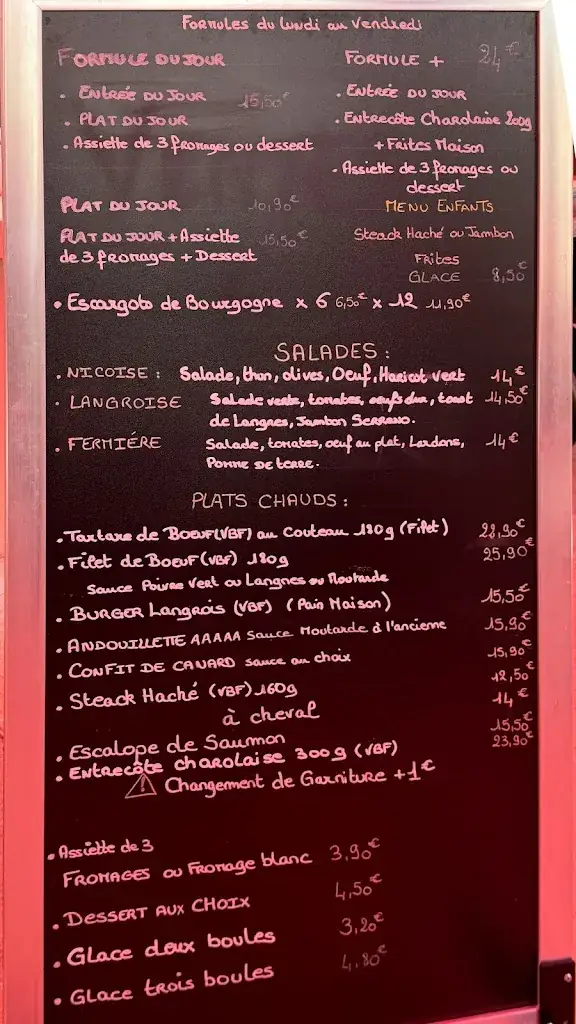 Formules du Lundi au Vendredi
FORMULE DU JOUR
. ENTRÉE DU JOUR 15,50€
. PLAT DU JOUR
. Assiette de 3 fromages ou dessert
FORMULE + 24€
. ENTRÉE DU JOUR
. Entrecôte Charolaise 200g
+ Frites Maison
. Assiette de 3 fromages ou
dessert
PLAT DU JOUR 10,90€
PLAT DU JOUR + Assiette 15,50€
de 3 fromages + Dessert
MENU ENFANTS
Steack Haché ou Jambon
Frites
GLACE 8,50€
. Escargots de Bourgogne x 6 6,50€ x 12 11,90€
SALADES :
. NICOISE : Salade, thon, olives, Oeuf, Haricot vert 14€
. LANGROISE Salade verte, tomates, oeufs dur, toast 14,50€
de Langres, Jambon Serrano.
. FERMIÉRE Salade, tomates, oeuf au plat, Lardons, 14€
Pomme de terre.
PLATS CHAUDS :
. Tartare de Boeuf (VBF) au Couteau 180g (Filet) 22,90€
. Filet de Boeuf (VBF) 180g 25,90€
Sauce Poivre Vert ou Langres ou Moutarde
. BURGER Langrois (VBF) (Pain Maison) 15,50€
. ANDOUILLETTE AAAAA Sauce Moutarde à l'ancienne 15,90€
. CONFIT DE CANARD sauce au choix 15,90€
. Steack Haché (VBF) 160g 12,50€
à cheval 14€
. Escalope de Saumon 15,50€
. Entrecôte charolaise 300g (VBF) 23,90€
⚠ Changement de Garniture +1€
. Assiette de 3
FROMAGES ou Fromage blanc 3,90€
. DESSERT AUX CHOIX 4,50€
. Glace deux boules 3,20€
. Glace trois boules 4,80€